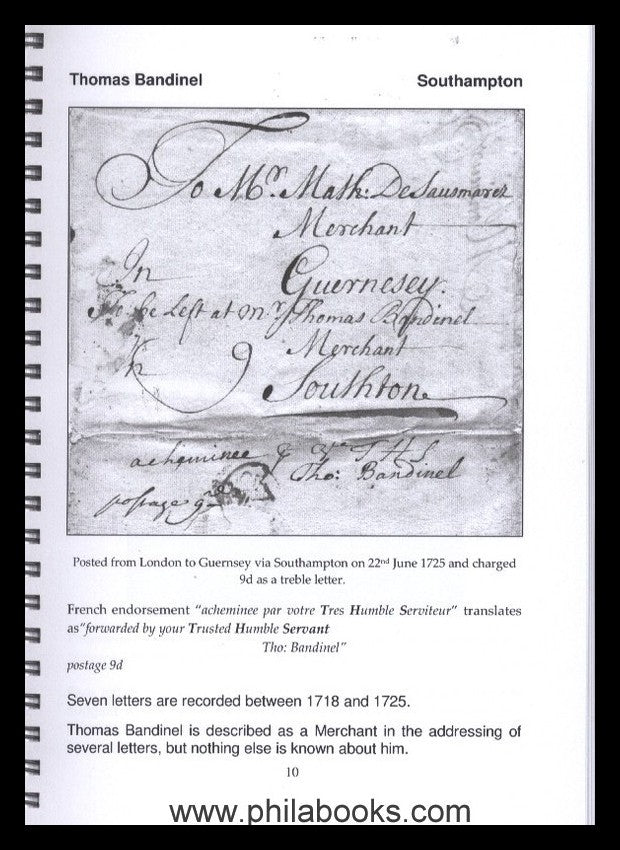 Thomas Bandinel
Southampton
To Mr. Math: DeSausmarez
Merchant
In Guernesey.
To be Left at Mr Thomas Bandinel
Merchant
In 9 Southton.
acheminee p Ye T H S
Tho: Bandinel
postage 9d
Posted from London to Guernsey via Southampton on 22nd June 1725 and charged
9d as a treble letter.
French endorsement "acheminee par votre Tres Humble Serviteur" translates
as"forwarded by your Trusted Humble Servant
Tho: Bandinel"
postage 9d
Seven letters are recorded between 1718 and 1725.
Thomas Bandinel is described as a Merchant in the addressing of
several letters, but nothing else is known about him.
10
www.philabooks.com